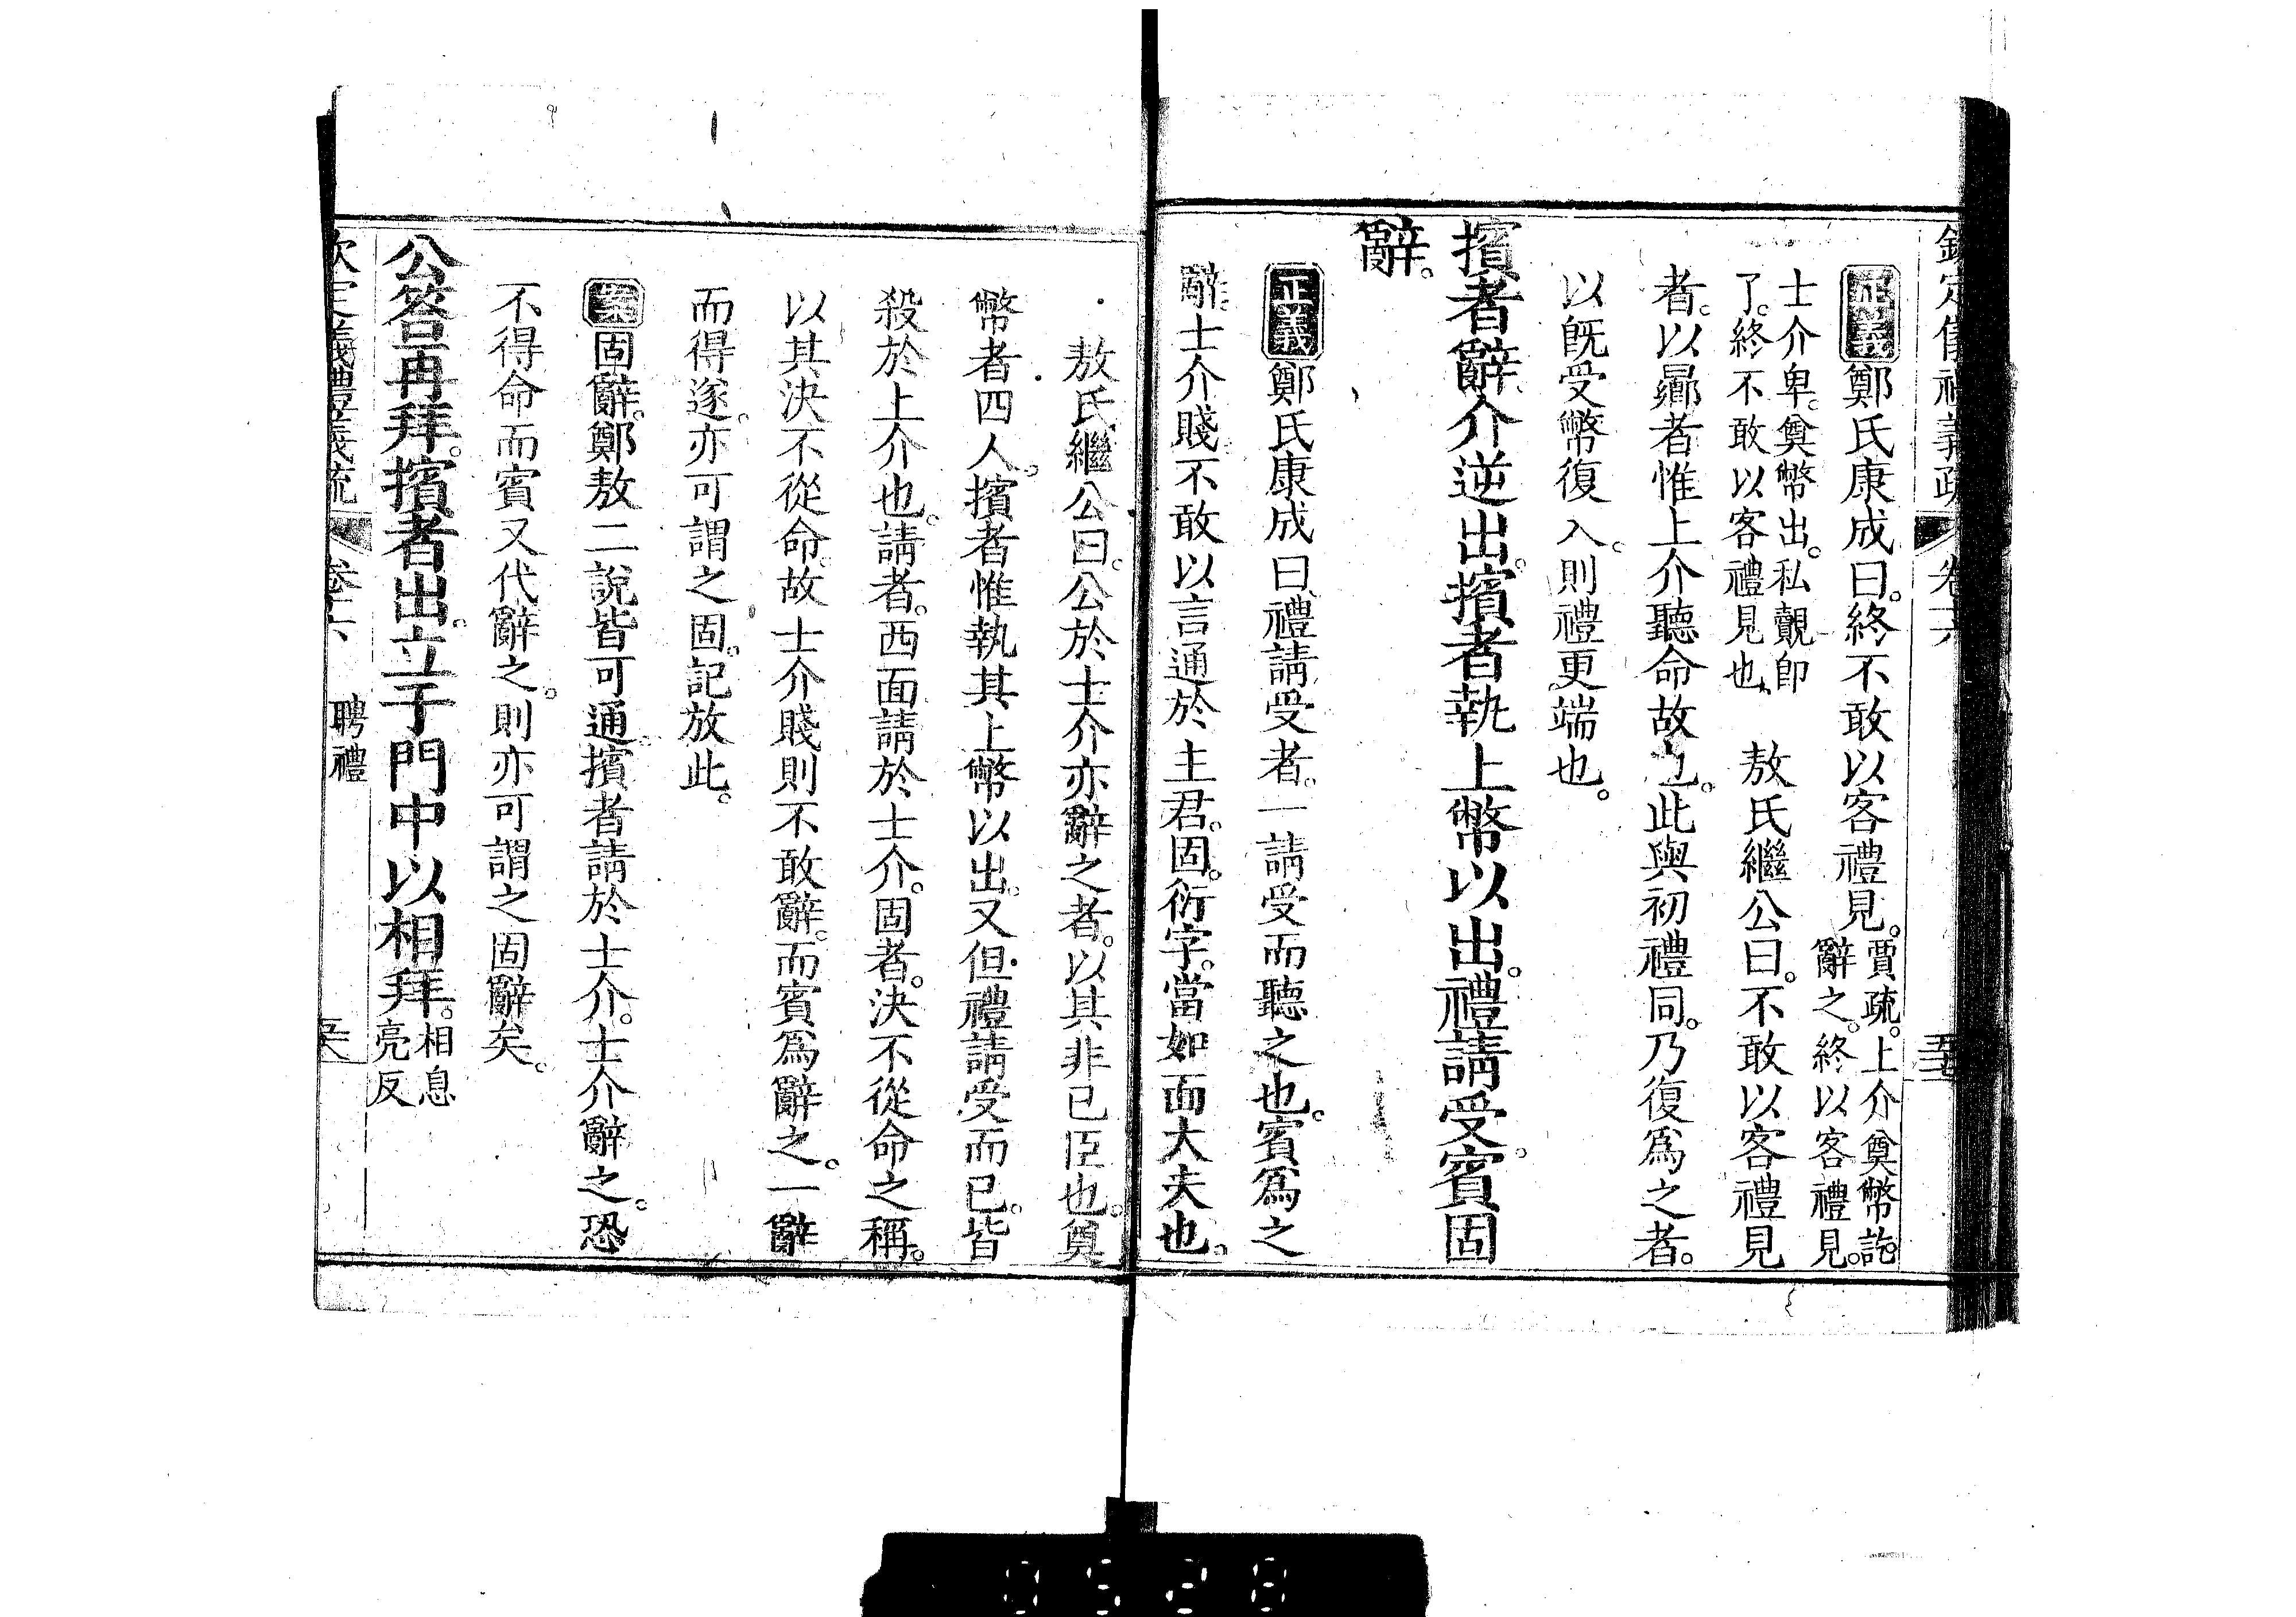 欽定儀禮義疏 卷十六 五十七
正義鄭氏康成曰。終不敢以客禮見。賈疏。上介奠幣訖。辭之。終以客禮見。
士介卑。奠幣出。私覿即了。終不敢以客禮見也、 敖氏繼公曰。不敢以客禮見
者。以曏者惟上介聽命故也。此與初禮同。乃復爲之者。
以旣受幣復入。則禮更端也。
擯者辭、介逆出。擯者執上幣以出。禮請受。賓固
辭。
正義鄭氏康成曰、禮請受者。一請受而聽之也。賓爲之
辭。士介賤不敢以言通於主君。固。衍字。當如面大夫也。
敖氏繼公曰。公於士介亦辭之者。以其非己臣也。奠
幣者四人。擯者惟執其上幣以出。又但禮請受而已。皆
殺於上介也。請者。西面請於士介。固者。決不從命之稱。
以其決不從命。故士介賤則不敢辭。而賓爲辭之。一辭
而得遂。亦可謂之固。記放此。
案固辭。鄭敖二說皆可通。擯者請於士介。士介辭之。恐
不得命而賓又代辭之。則亦可謂之固辭矣。
公答再拜。擯者出。立于門中以相拜。相息亮反
欽定儀禮義疏 卷十六 聘禮 五十八
0528